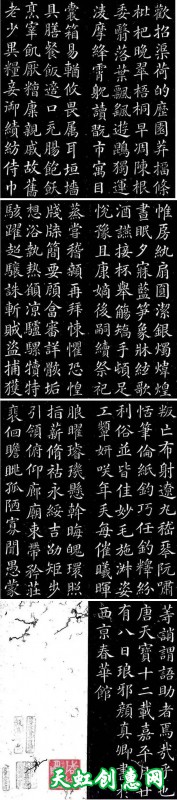 歡招渠荷的歷園莽抽條
枇杷晚翠梧桐早凋陳根
委翳落葉飄颻遊鵾獨運
凌摩絳霄耽讀翫市寓目
囊箱易輶攸畏属耳垣墻
具膳餐飯適口充腸飽飫
烹宰飢厭糟糠親戚故舊
老少異糧妾御績紡侍巾
帷房紈扇圓潔銀燭煒煌
晝眠夕寐藍笋象牀絃歌
酒讌接杯舉觴矯手頓足
悅豫且康嫡後嗣續祭祀
蒸嘗稽顙再拜悚懼恐惶
牋牒簡要顧答審詳骸垢
想浴執熱願凉驢騾犢特
駭躍超驤誅斬賊盜捕獲
叛亡布射遼丸嵇琴阮嘯
恬筆倫紙鈞巧任釣釋紛
利俗並皆佳妙毛施淑姿
工顰妍咲年矢每催曦暉
朗曜璇璣懸斡晦魄環照
指薪修祜永綏吉劭矩步
引領俯仰廊廟束帶矜莊
裵佪瞻眺孤陋寡聞愚蒙
等誚謂語助者焉哉乎也
唐天寶十二載嘉平月廿
有八日琅邪顏真卿書於
西京春華館
天虹创意网